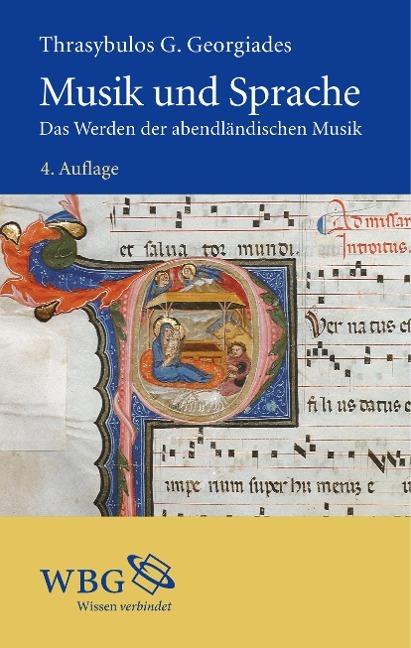 Thrasybulos G. Georgiades
Musik und Sprache
Das Werden der abendländischen Musik
4. Auflage
Ad missam
Introitus.
et salva tor mundi.
Uer na tus es
fi li us datus e
impe rium super hu meruz e
WBG
Wissen verbindet